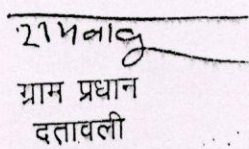 रामबाबू
ग्राम प्रधान
दतावली